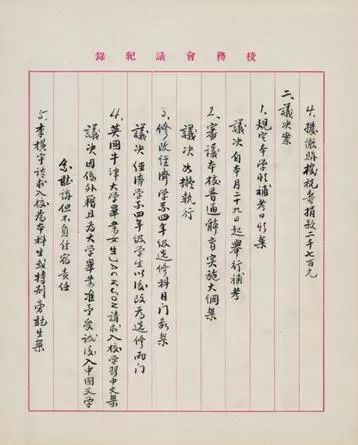 校務會議紀錄
4. 祝壽捐款二千七百元
二、議決案
1. 規定本學期補考日期案
議決 自本月二十九日起舉行補考
2. 審議本校普通體育實施大綱案
議決 照擬執行
3. 修改經濟學系四年級選修科目門數案
議決 經濟學系四年級學生以後改為選修兩門
4. 英國牛津大學畢業女生Jackson請求入校學習中文案
議決 因係外籍且為大學畢業准予受試後入中國文學
系聽講但不負住宿責任
5. 李橫宇請求入校為本科生或特別旁聽生案